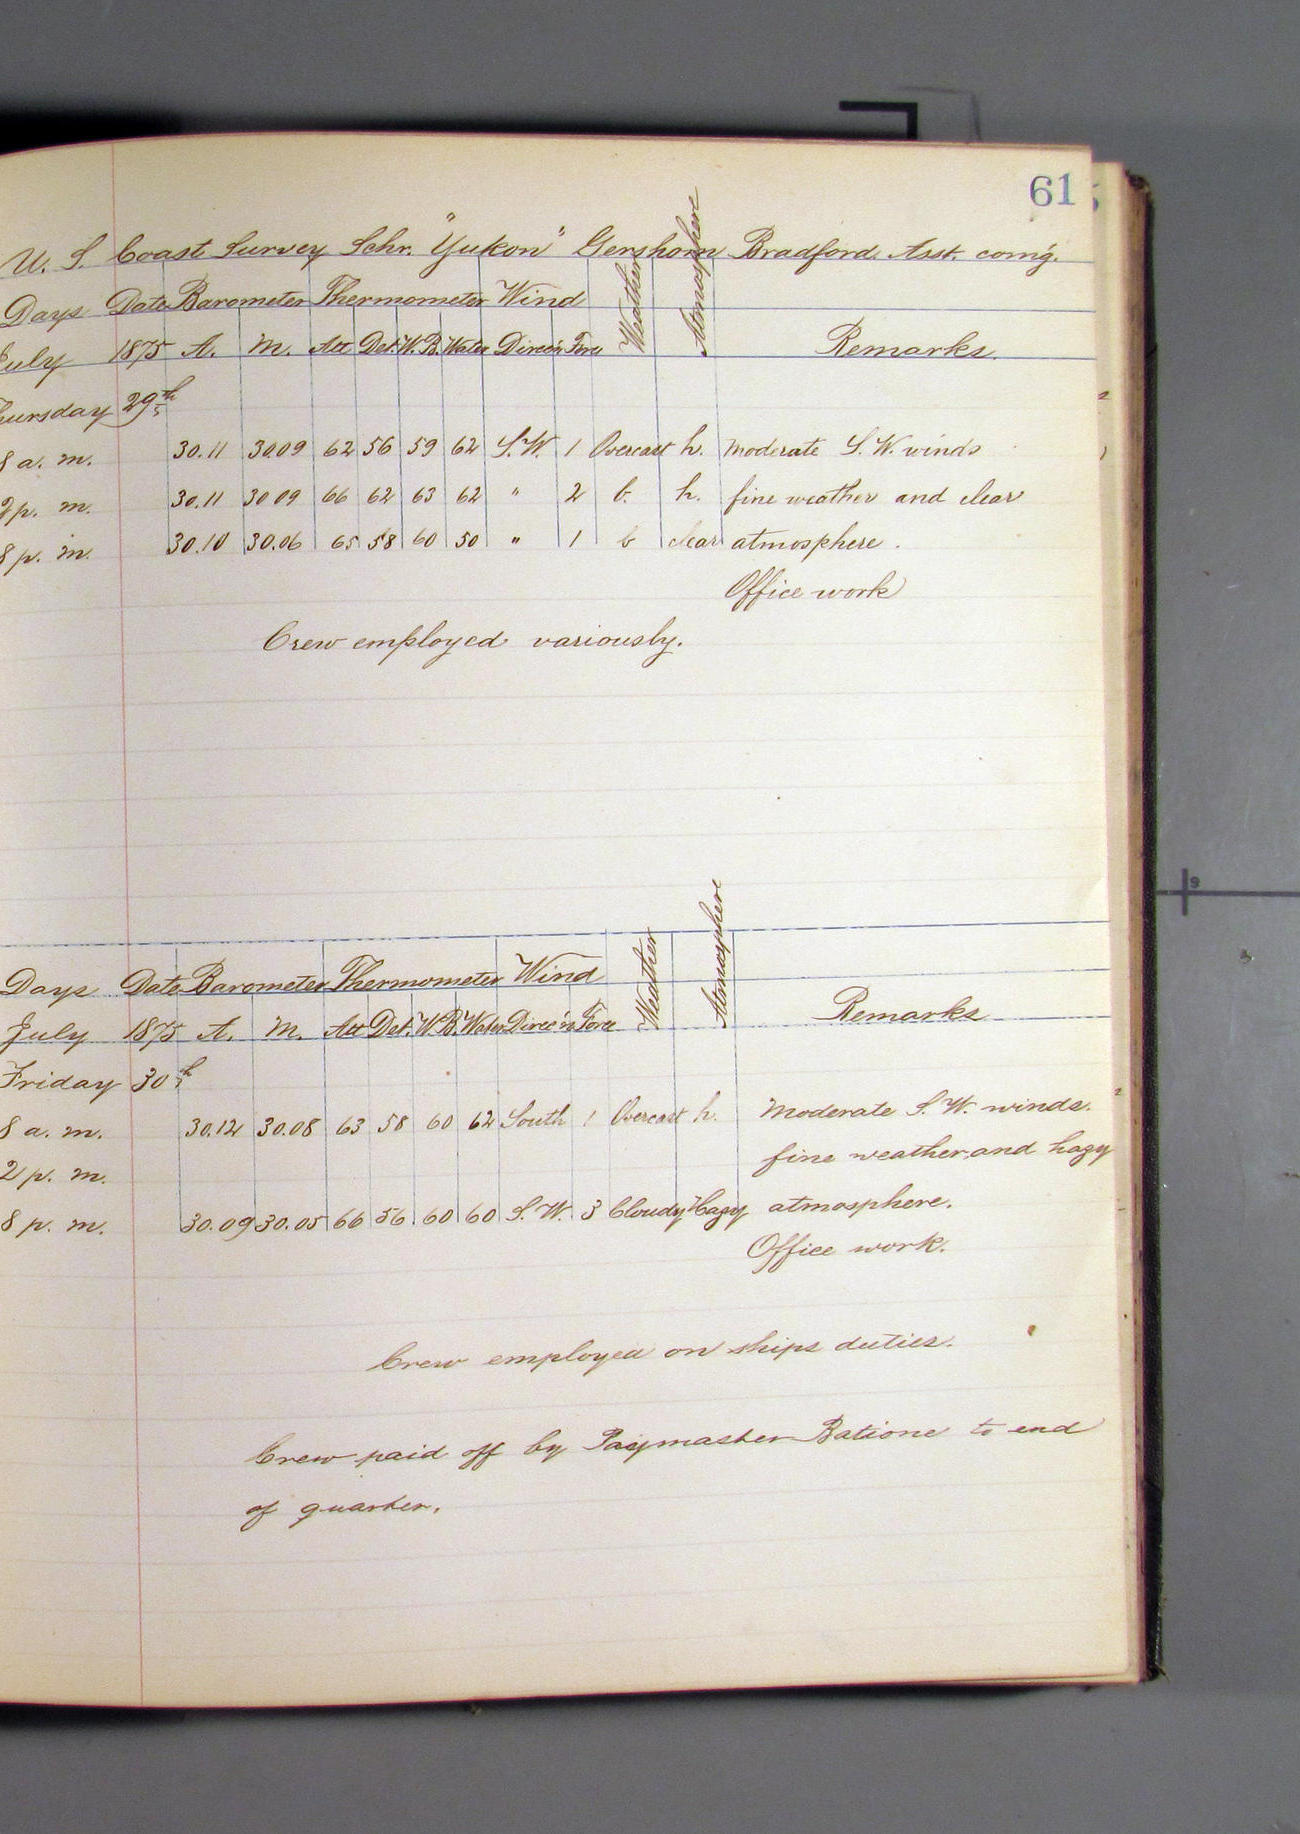 61
U. S. Coast Survey Schr. "Yukon" Gershom Bradford Asst. com'g.
Days Date Barometer Thermometer Wind Weather Atmosphere
July 1875 A. M. Att Det. W.B. Water Direc'n Force Remarks
Thursday 29th
8 a. m. 30.11 30.09 62 56 59 62 S.W. 1 Overcast h. moderate S. W. winds
2 p. m. 30.11 30 09 66 62 63 62 " 2 b. h. fine weather and clear
8 p. m. 30.10 30.06 65 58 60 50 " 1 b clear atmosphere.
Office work
Crew employed variously.
Days Date Barometer Thermometer Wind Weather Atmosphere
July 1875 A. M. Att Det. W.B. Water Direc'n Force Remarks
Friday 30th
8 a. m. 30.12 30.08 63 58 60 62 South 1 Overcast h. Moderate S. W. winds.
2 p. m. fine weather and hazy
8 p. m. 30.09 30.05 66 56 60 60 S. W. 3 Cloudy Hazy atmosphere.
Office work.
Crew employed on ships duties.
Crew paid off by Paymaster to end
of quarter.